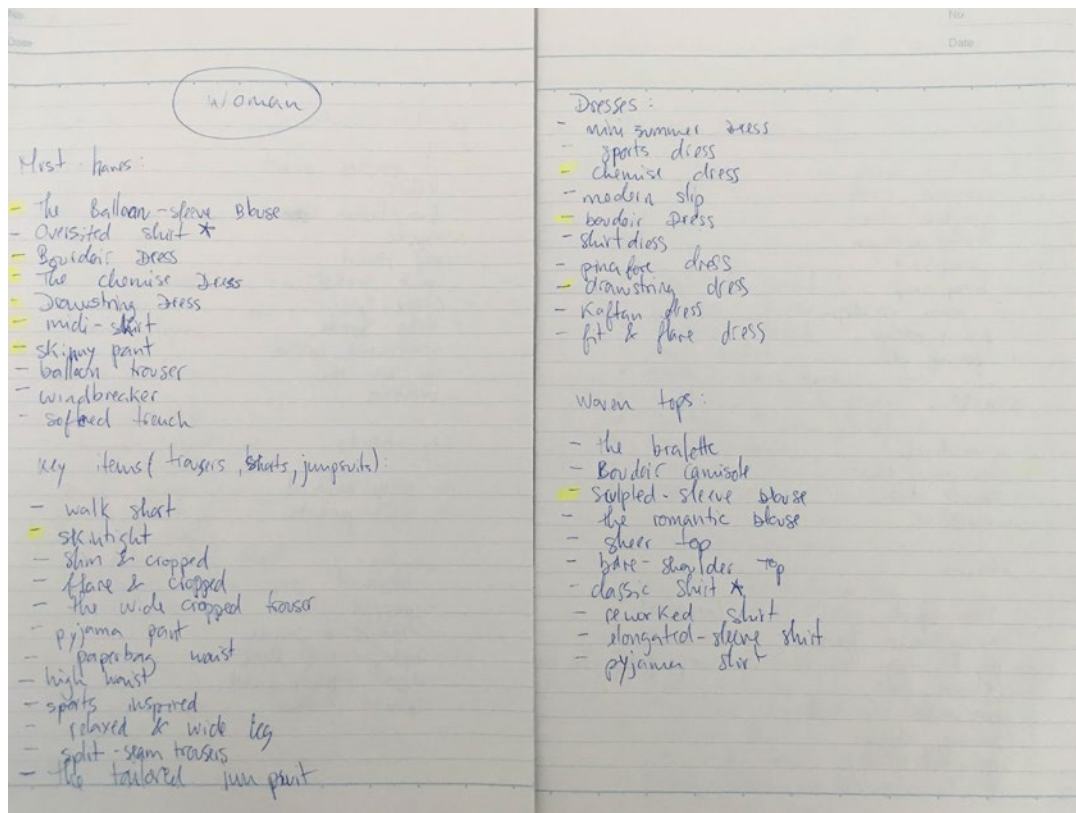 No:
Date
Woman
Must haves:
- The Balloon-sleeve Blouse
- Oversited shirt *
- Bourdoir Dress
- The chemise Dress
- Drawstring Dress
- midi-skirt
- skinny pant
- balloon trouser
- windbreaker
- softned trench
Key items (trousers, shorts, jumpsuits):
- walk short
- skintight
- slim & cropped
- flare & cropped
- the wide cropped trouser
- pyjama pant
- paperbag waist
- high waist
- sports inspired
- relaxed & wide leg
- split-seam trousers
- the tailored jumpsuit
No:
Date
Dresses:
- mini summer dress
- sports dress
- chemise dress
- modern slip
- boudoir Dress
- shirtdress
- pinafore dress
- drawstring dress
- Kaftan dress
- fit & flare dress
Woven tops:
- the bralette
- Boudoir camisole
- Sculpted-sleeve blouse
- the romantic blouse
- sheer top
- bare-shoulder top
- classic shirt *
- reworked shirt
- elongated-sleeve shirt
- pyjama shirt